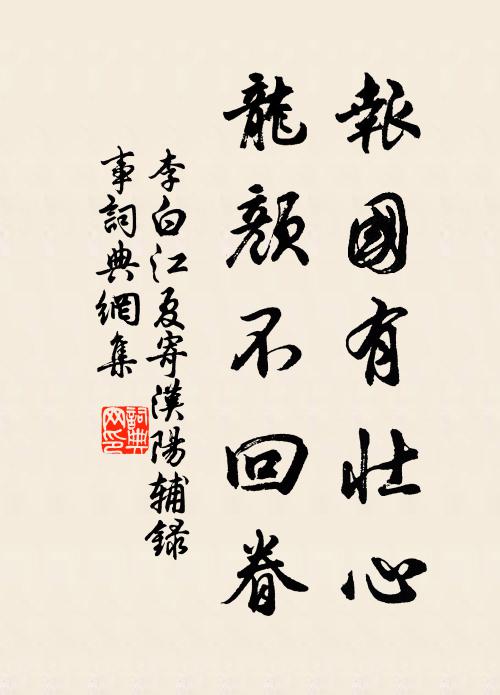 報國有壯心
龍顏不回眷
李白江夏寄漢陽輔錄
事詞典網集
詞典
网印